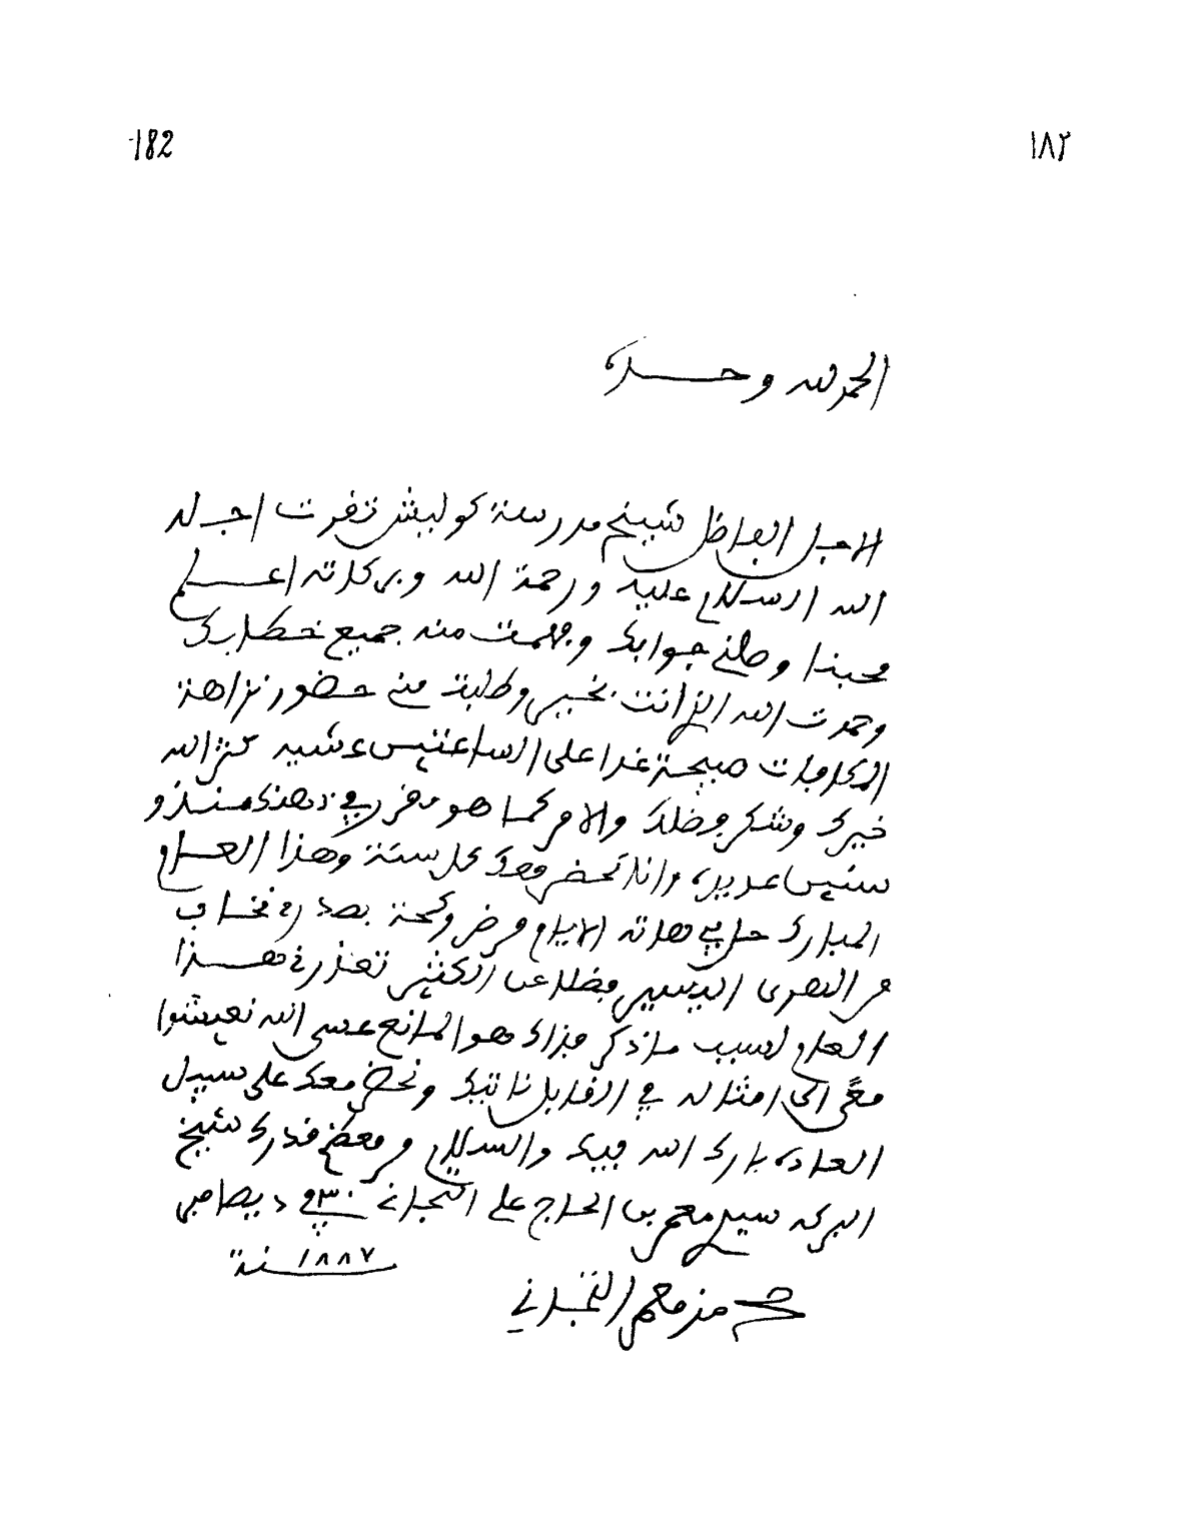 182
١٨٢
الحمد لله وحده
الاجل الفاضل شيخ مدرسة كوليش تقرت اجله
الله السلام عليك ورحمة الله وبركاته اعلم
محبنا وصلني جوابك وفهمت منه جميع خطابك
وحمدت الله الذي انت بخير وطلبت مني حضور نزاهة
المكافات صبيحة غدا على الساعتين عشية كثر الله
خيرك وشكر فضلك والامر كما هو مقرر في ذهنك منذ
سنين عديدة وانا نحضر معك كل سنة وهذا العام
المبارك حل بي هاته الايام مرض وكحة بصدري نخاف
من الهوى اليسير فضلا عن الكثير تعذرني هذا
العام لسبب ما ذكر فذاك هو المانع عسى الله نعيشوا
معًا الى امثاله في القابل ناتيك ونحضر معك على سبيل
العادة بارك الله فيك والسلام من معظم قدرك شيخ
البركة سيدي معمر بن الحاج علي التجاني ٣٠ في ديصامبر
سنة ١٨٨٧
معمر التجاني